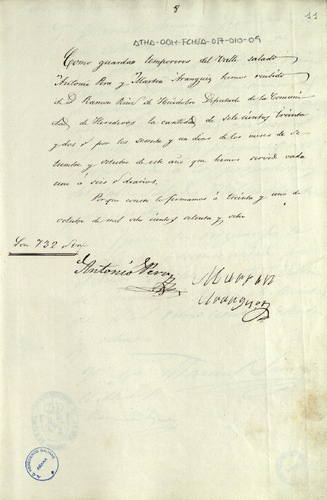 8
11
ATHA-DAH-FCHSA-017-010-09
Como guardas temporeros del Valle salado
Antonio Pero y Martin Aranguiz hemos recibido
de D. Ramon Ruiz de Huidobro Diputado de la Comuni
dad de Herederos la cantidad de setecientos treinta
y dos rs por los sesenta y un dias de los meses de Se
tiembre y octubre de este año que hemos servido cada
uno á seis rs diarios.
Porque conste lo firmamos á treinta y uno de
octubre de mil ochocientos setenta y ocho
Son 732 Rvn
Antonio Perez
Martin
Aranguiz